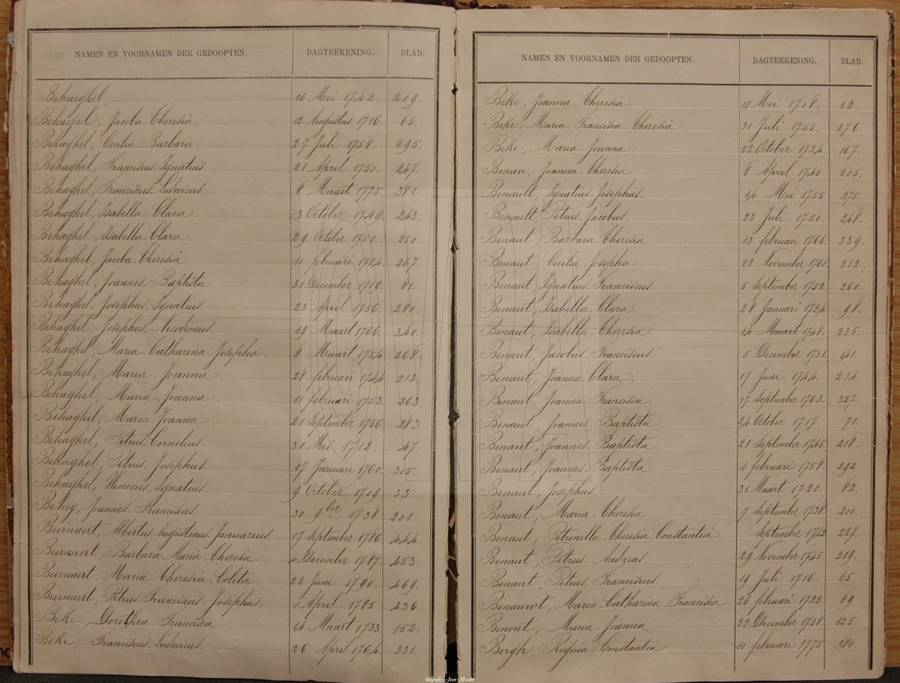 NAMEN EN VOORNAMEN DER GEDOOPTEN. DAGTEEKENING. BLAD.
Behaeghel, 16 Mei 1742. 209.
Behaegel, Jacoba Theresia. 12 Augustus 1716. 65.
Behaghel, Cecilia Barbara 27 Juli 1758. 295.
Behaghel, Franciscus Ignatius 21 April 1750. 247.
Behaghel, Franciscus Ludovicus. 8 Maart 1775. 381.
Behaghel, Isabella Clara 3 October 1749. 243.
Behaghel, Isabella Clara. 29 October 1750. 250.
Behaghel, Jacoba Theresia 11 februari 1754. 267.
Behaghel, Joannes Baptista 31 December 1719. 81.
Behaghel, Josephus Ignatius 23 April 1756. 280.
Behaghel, Josephus 19 Maart 1766. 340.
Behaghel, Maria Catharina Josepha 8 Maart 1754. 268.
Behaghel, Maria Joanna 28 februari 1744. 213.
Behaghel, Maria Joanna 11 februari 1753. 263
Behaghel, Maria Joanna 21 September 1756. 283
Behaghel, Petrus Cornelius 31 Mei 1712. 47.
Behaghel, Petrus Josephus. 17 Januari 1760. 305.
Behaghel, Ignatius. 9 October 1709. 33
Joannes Franciscus 30 9ber 1738. 201.
Burnaert, Albertus Augustinus Januarius 17 September 1786. 444.
Burnaert, Barbara Maria Theresia 4 December 1787. 453.
Burnaert, Maria Theresia Coleta 22 Juni 1790. 469.
Burnaert, Petrus Franciscus Josephus. 1 April 1785. 436.
Beke, Dorothea Francisca 14 Maart 1733. 152.
Beke, Franciscus Ludovicus. 26 April 1764. 331.
NAMEN EN VOORNAMEN DER GEDOOPTEN. DAGTEEKENING. BLAD.
Beke, Joanna Theresia 15 Mei 1708. 22.
Beke, Maria Francisca Theresia 31 Juli 1755. 276.
Beke, Maria Joanna 22 October 1734. 167.
Benau, Joanna Theresia 8 April 1741. 205.
Benault, Ignatius Josephus. 14 Mei 1755 275.
Benault, Petrus Jacobus 23 Juli 1750. 248.
Benaut, Barbara Theresia 13 februari 1766. 339.
Benaut, Cecilia Josepha 22 November 1760. 312.
Benaut, Ignatius Franciscus 5 September 1752. 260.
Benaut, Isabella Clara 28 Januari 1724. 98.
Benaut, Isabella Theresia 24 Maart 1748. 235.
Benaut, Jacobus Franciscus 5 December 1731. 141.
Benaut, Joanna Clara. 17 Juni 1744. 214
Benaut, Joanna Francisca 17 September 1763. 327.
Benaut, Joannes Baptista 24 October 1717. 71.
Benaut, Joannes Baptista 21 September 1745. 218.
Benaut, Joannes Baptista 1 februari 1758. 292.
Benaut, Josephus 31 Maart 1720. 82.
Benaut, Maria Theresia 7 September 1738. 200.
Benaut, Petronilla Theresia Constantia September 1752 227.
Benaut, Petrus Andreas 29 November 1745. 219.
Benaut, Petrus Franciscus 19 Juli 1716. 65.
Benauwt, Maria Catharina Francisca 26 februari 1722 89
Benoit, Maria Joanna 22 December 1728. 125.
Bergh, Regina Constantia 11 februari 1775. 380.